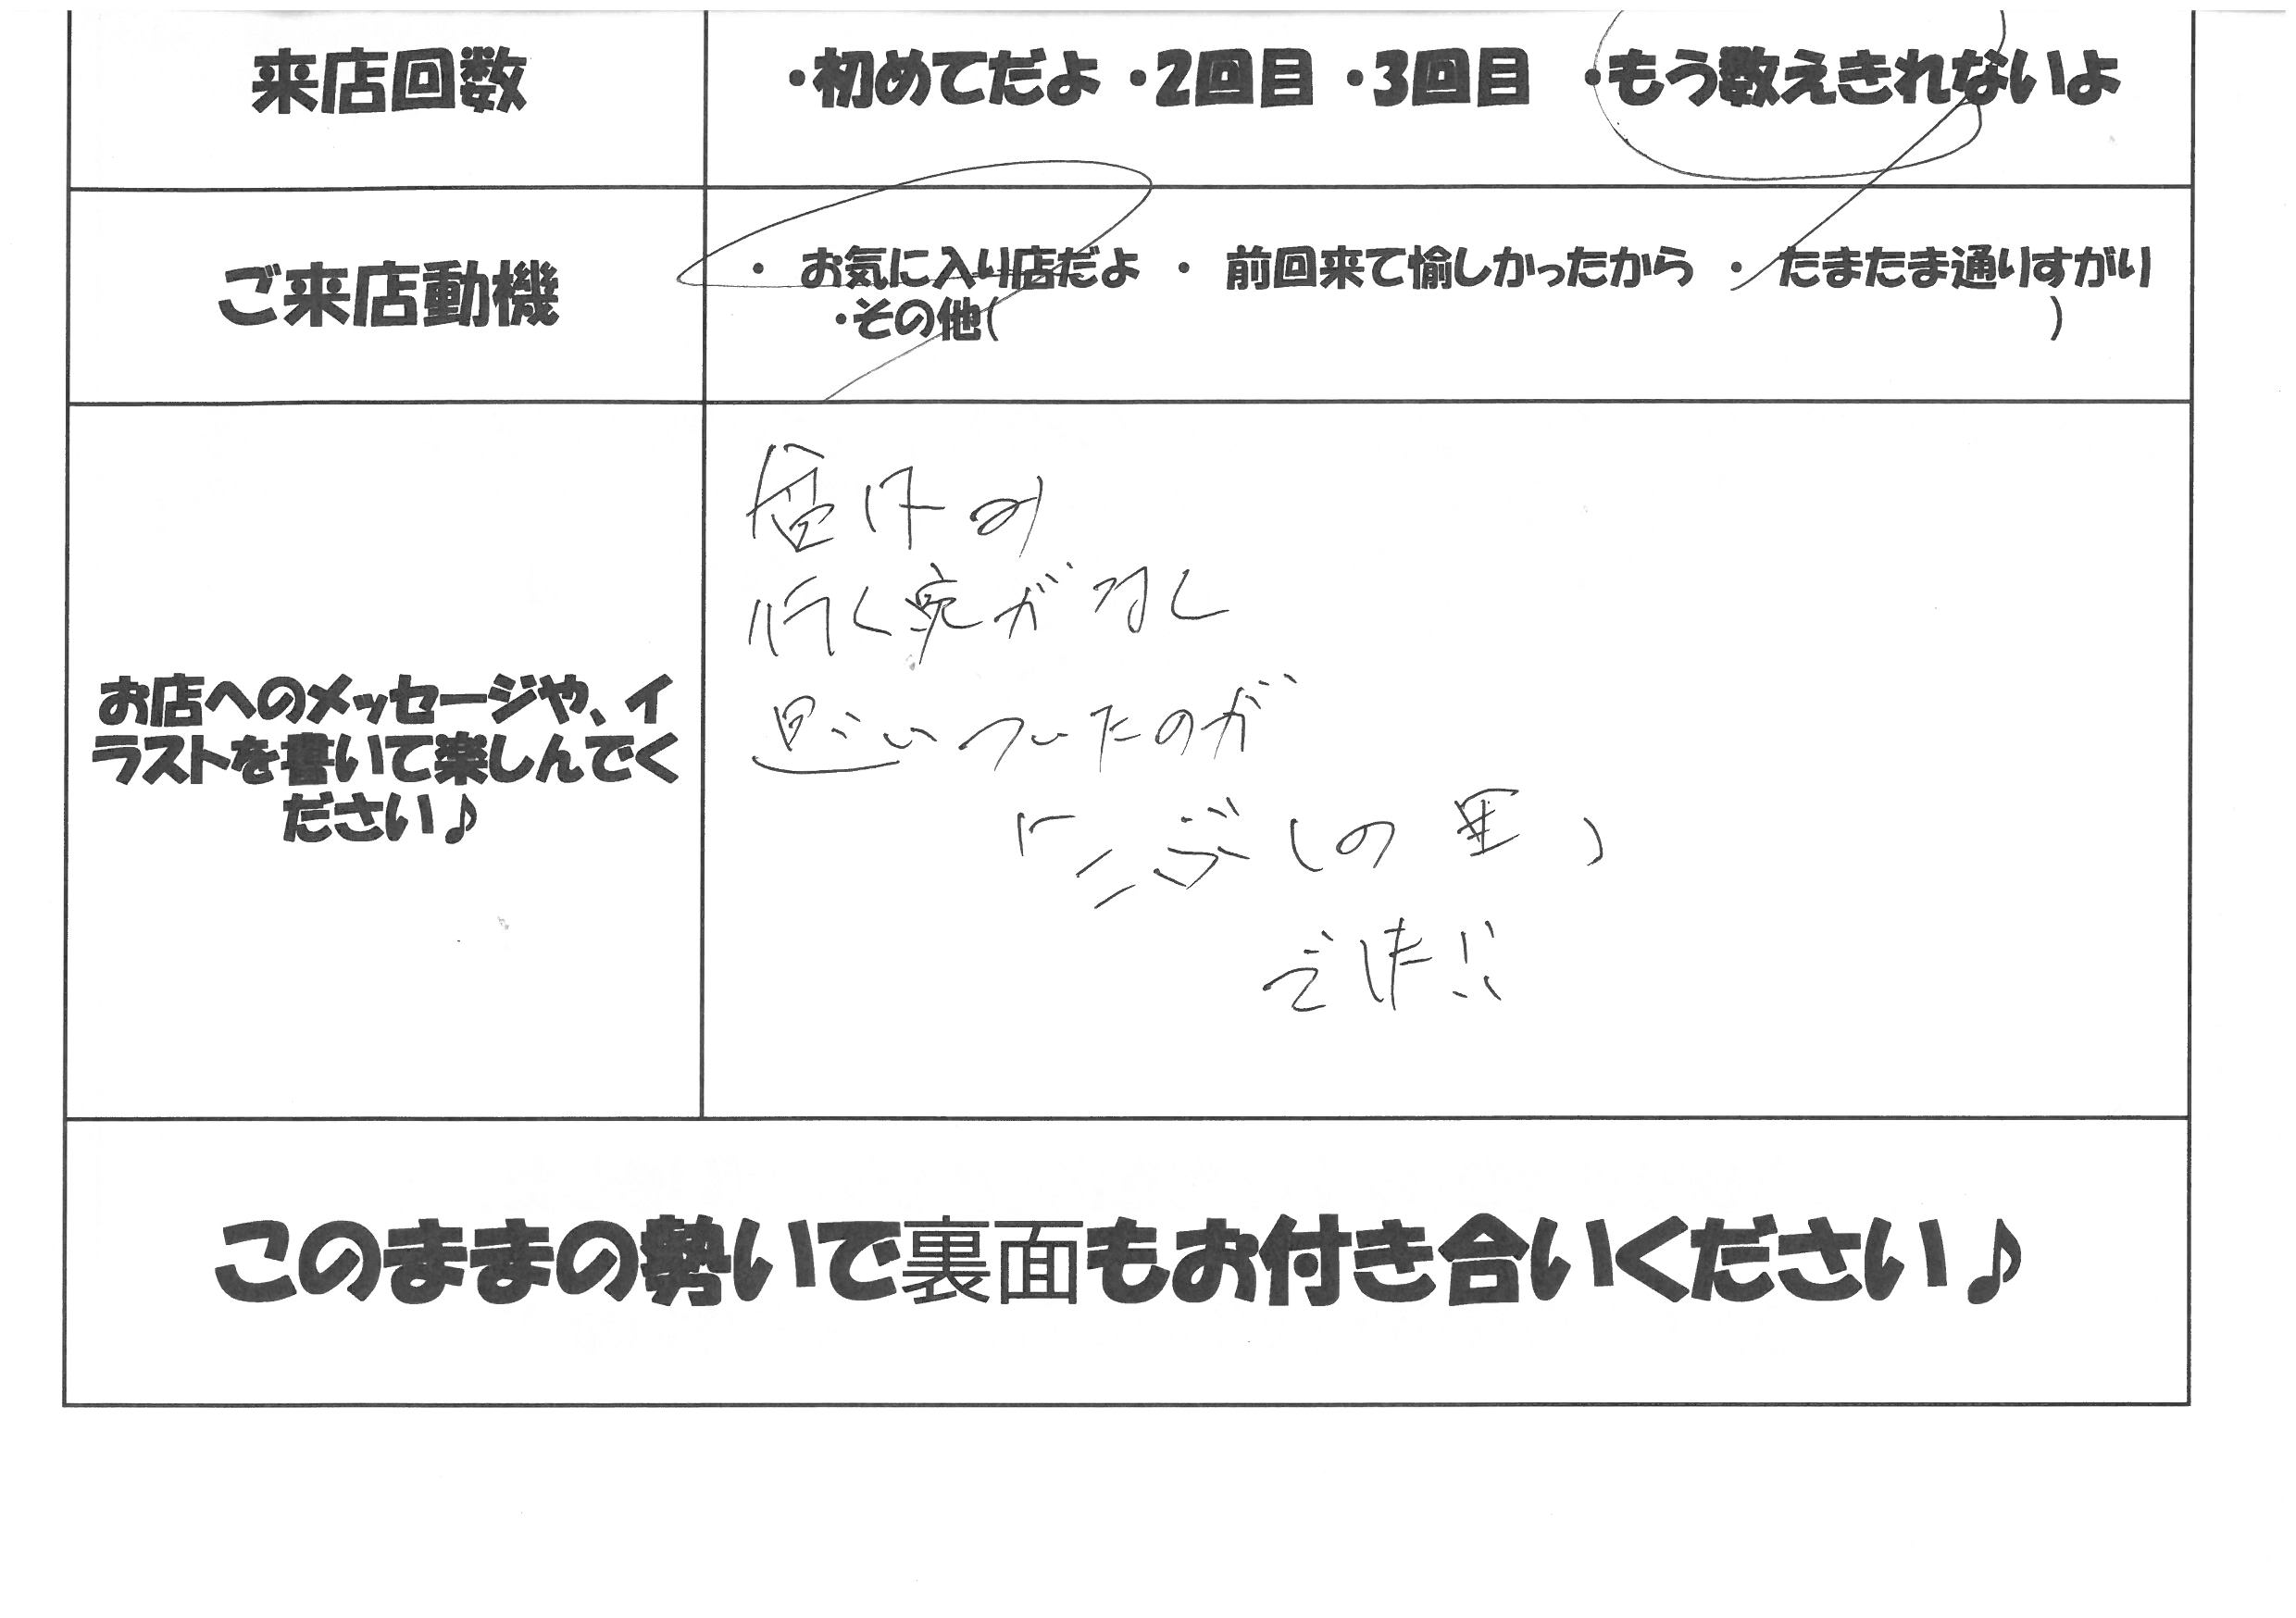 来店回数
・初めてだよ ・2回目 ・3回目 ・もう数えきれないよ
ご来店動機
・ お気に入り店だよ ・ 前回来て愉しかったから ・ たまたま通りすがり
・その他( )
お店へのメッセージや、イ
ラストを書いて楽しんでく
ださい♪
行く
思いついたのが
「こぶしの里」
でした!!
このままの勢いで裏面もお付き合いください♪